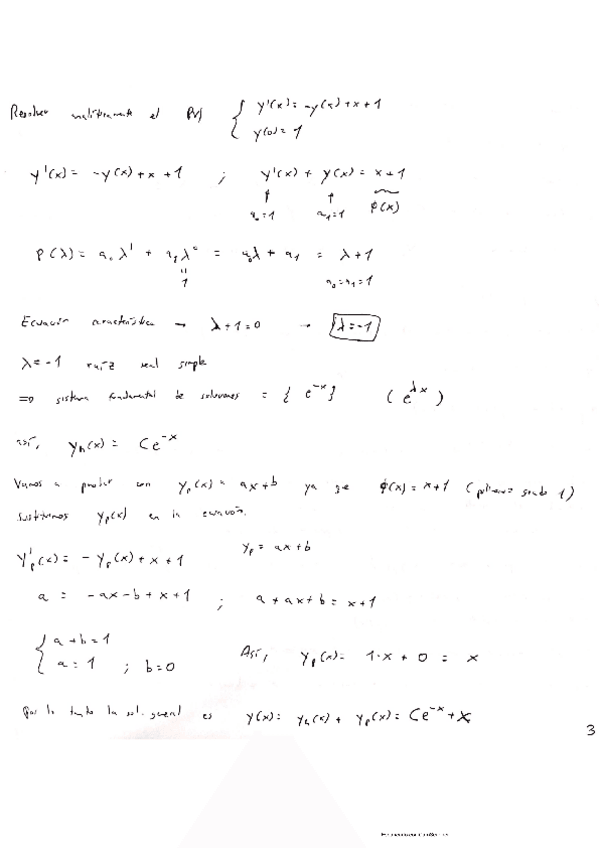 Resolver analíticamente el PVI { y'(x) = -y(x) + x + 1
y(0) = 1
y'(x) = -y(x) + x + 1 ; y'(x) + y(x) = x + 1
a₀=1 a₁=1 φ(x)
P(λ) = a₀λ¹ + a₁λ⁰ = a₀λ + a₁ = λ + 1
1 a₀=a₁=1
Ecuación característica → λ+1=0 → λ=-1
λ=-1 raíz real simple
=> sistema fundamental de soluciones = { e^{-x} } ( e^{λx} )
así, y_h(x) = Ce^{-x}
Vamos a probar con y_p(x) = ax+b ya que φ(x) = x+1 (polinomio grado 1)
Sustituimos y_p(x) en la ecuación.
y'_p(x) = -y_p(x) + x + 1 y_p = ax+b
a = -ax - b + x + 1 ; a + ax + b = x + 1
{ a+b=1
a=1 ; b=0 Así, y_p(x) = 1·x + 0 = x
Por lo tanto la sol. general es y(x) = y_h(x) + y_p(x) = Ce^{-x} + x
3